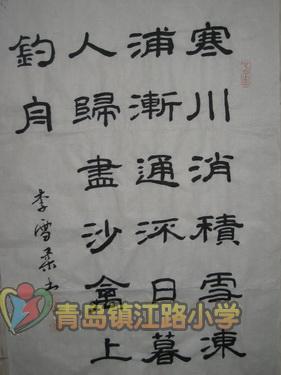 寒川消積雪凍
浦漸通流日暮
人歸盡沙禽上
釣舟
李雪柔书
青岛镇江路小学